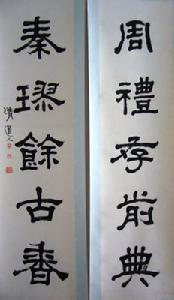 周禮存前典
秦璆餘古香